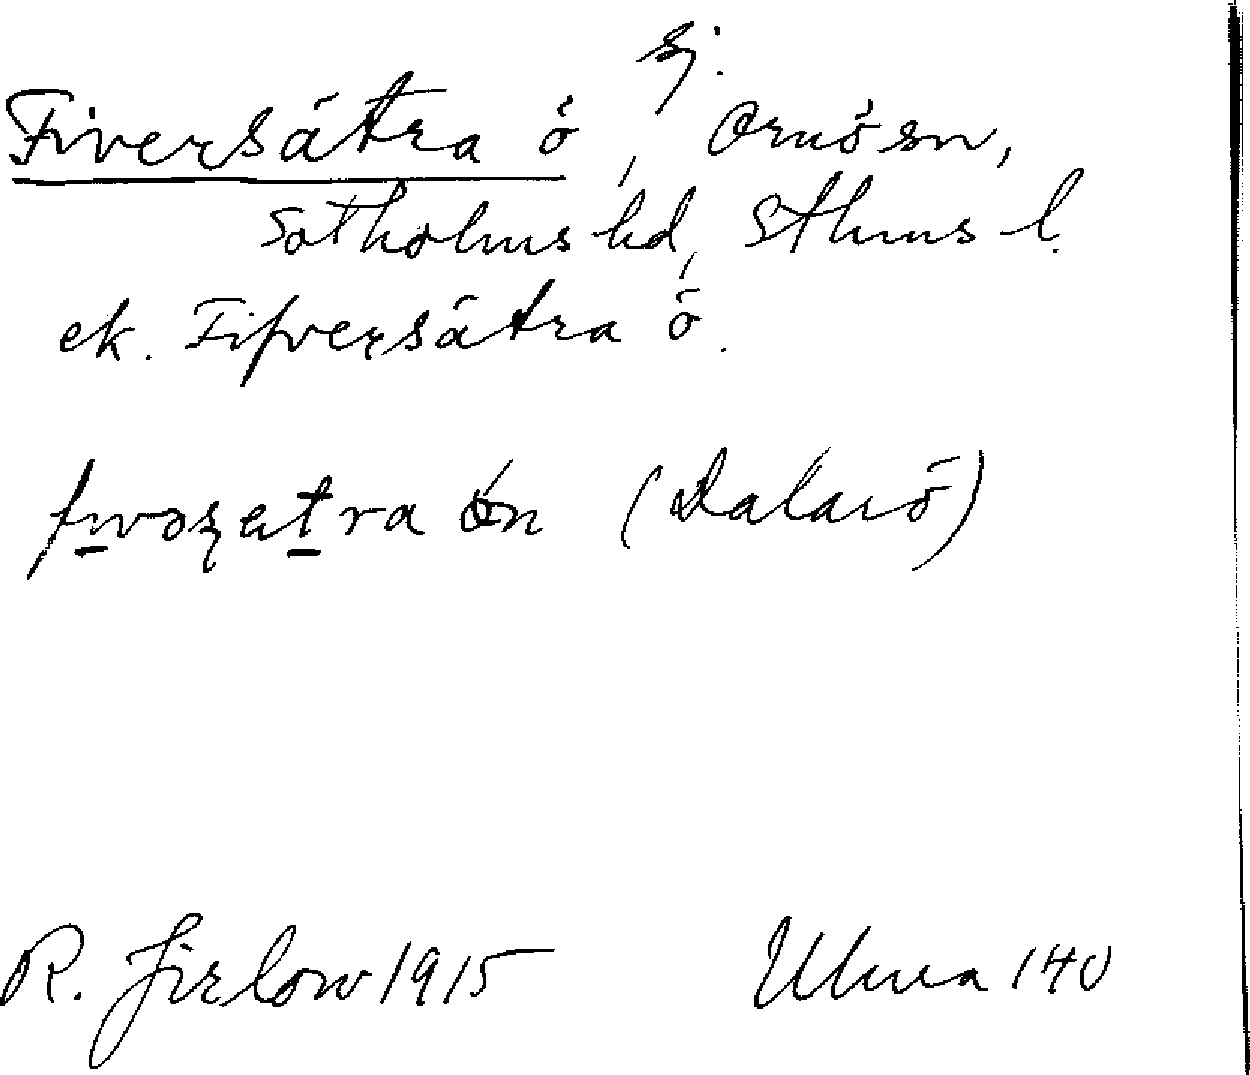 sj.
Fiversätra ö, Ornö sn,
Sotholms hd, Sthms l.
ek. Fifversätra ö.
ön (Dalarö)
R. Jirlow 1915 Ulma 140